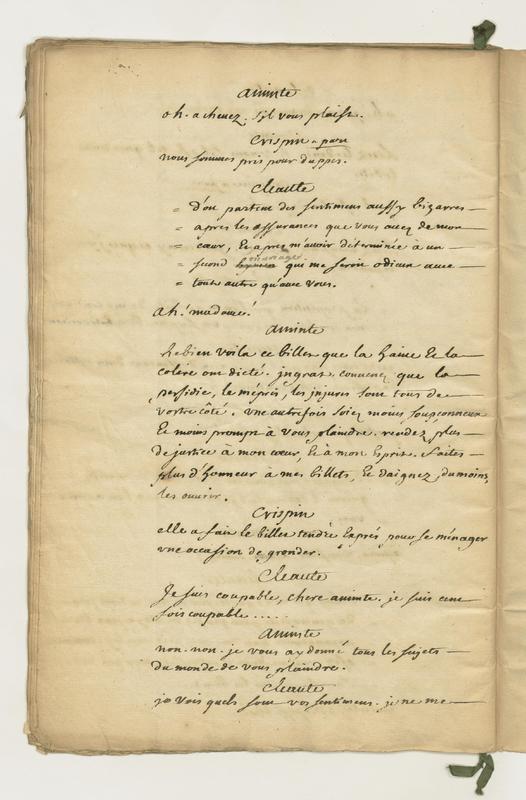 aminte
oh. achevez. s'il vous plaist.
Crispin a part
nous sommes pris pour duppes.
Cleante
= d'ou partent des sentimens aussy bizarres
= apres les assurances que vous avez de mon
= cœur, Et apres m'avoir déterminée à un
= second mariage qui me seroit odieux avec
= toute autre qu'avec vous.
ah! madame!
aminte
hebien voila ce billet que la haine Et la
colere ont dicté. jngrat. convenez que la
perfidie, le mépris, les injures sont tous de
vostre côté. une autrefois soiez moins soupçonneux
Et moins prompt à vous plaindre. rendez plus
de justice à mon cœur, Et à mon Esprit. faites
plus d'honneur à mes billets, Et daignez dumoins
les ouvrir.
Crispin
elle a fait le billet tendre Exprés pour se ménager
une occasion de gronder.
Cleante
Je suis coupable, chere aminte. je suis cent
fois coupable.....
Aminte
non. non. je vous ay donné tous les sujets
du monde de vous plaindre.
Cleante
je vois quels sont vos sentimens. je ne me